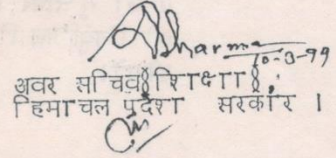 Sharma
10-3-99
अवर सचिव§शिक्षा§
हिमाचल प्रदेश सरकार ।